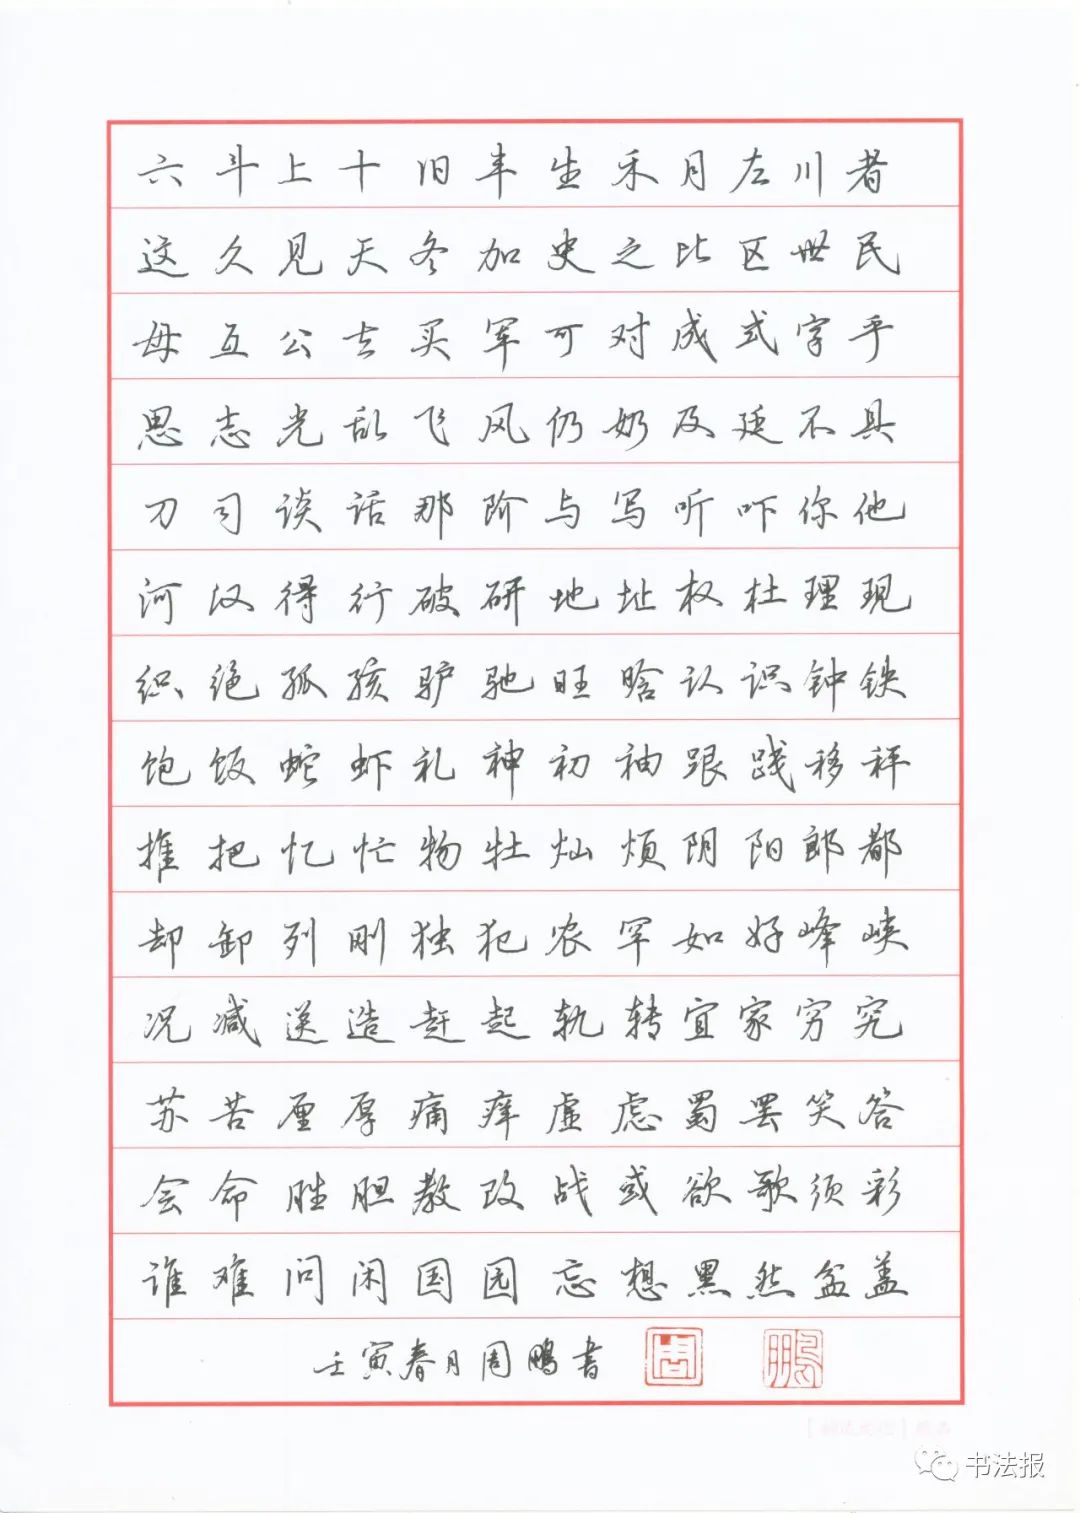 六斗上十旧丰生禾月左川者
这久见天冬加史之比区世民
母互公去买军可对成式字乎
思志光乱飞风仍奶及廷不具
刀司谈话那阶与写听吓你他
河汉得行破研地址权杜理现
织绝孤孩驴驰旺晗认识钟铁
饱饭蛇虾礼神初袖跟践移秤
推把忆忙物牡灿烦阴阳郎都
却卸列刚独犯农罕如好峰峡
况减送造赶起轨转宜家穷究
苏苦厘厚痛痒虚虑蜀罢笑答
会命胜胆教改战或欲歌须彩
谁难问闲国园忘想黑然盆盖
壬寅春月周鹏书 周 鹏
书法报